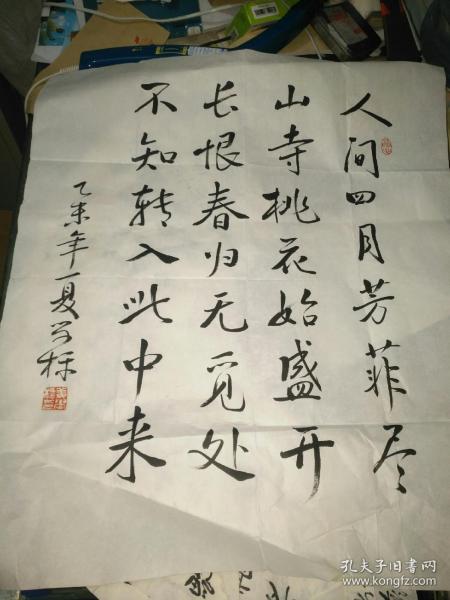 人间四月芳菲尽
山寺桃花始盛开
长恨春归无觅处
不知转入此中来
乙未年夏
孔夫子旧书网
www.kongfz.com